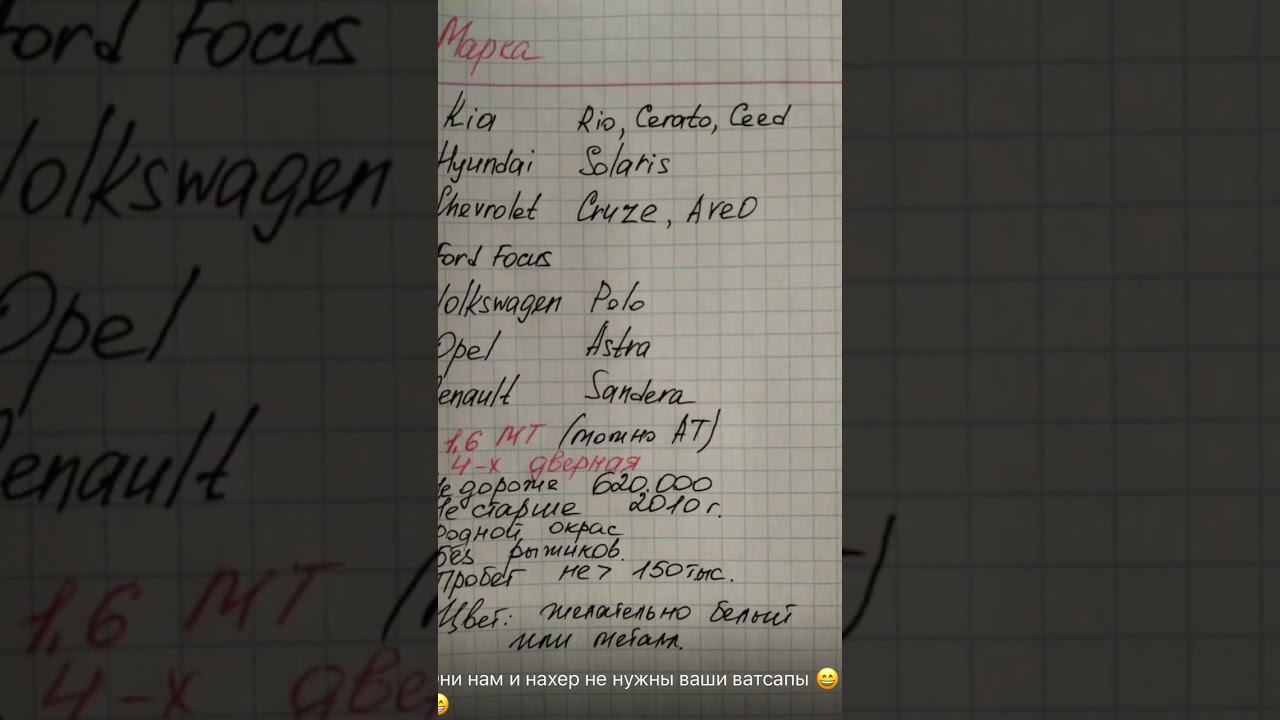 Марка
Kia Rio, Cerato, Ceed
Hyundai Solaris
Chevrolet Cruze, Aveo
Ford Focus
Volkswagen Polo
Opel Astra
Renault Sandera
1,6 МТ (можно АТ)
4-х дверная
Не дороже 620.000
Не старше 2010 г.
Родной окрас
Без рыжиков.
Пробег не > 150 тыс.
Цвет: желательно белый
или металл.
они нам и нахер не нужны ваши ватсапы 😄
😄
Ford Focus
Volkswagen
Opel
Renault
1,6 МТ (
4-х две